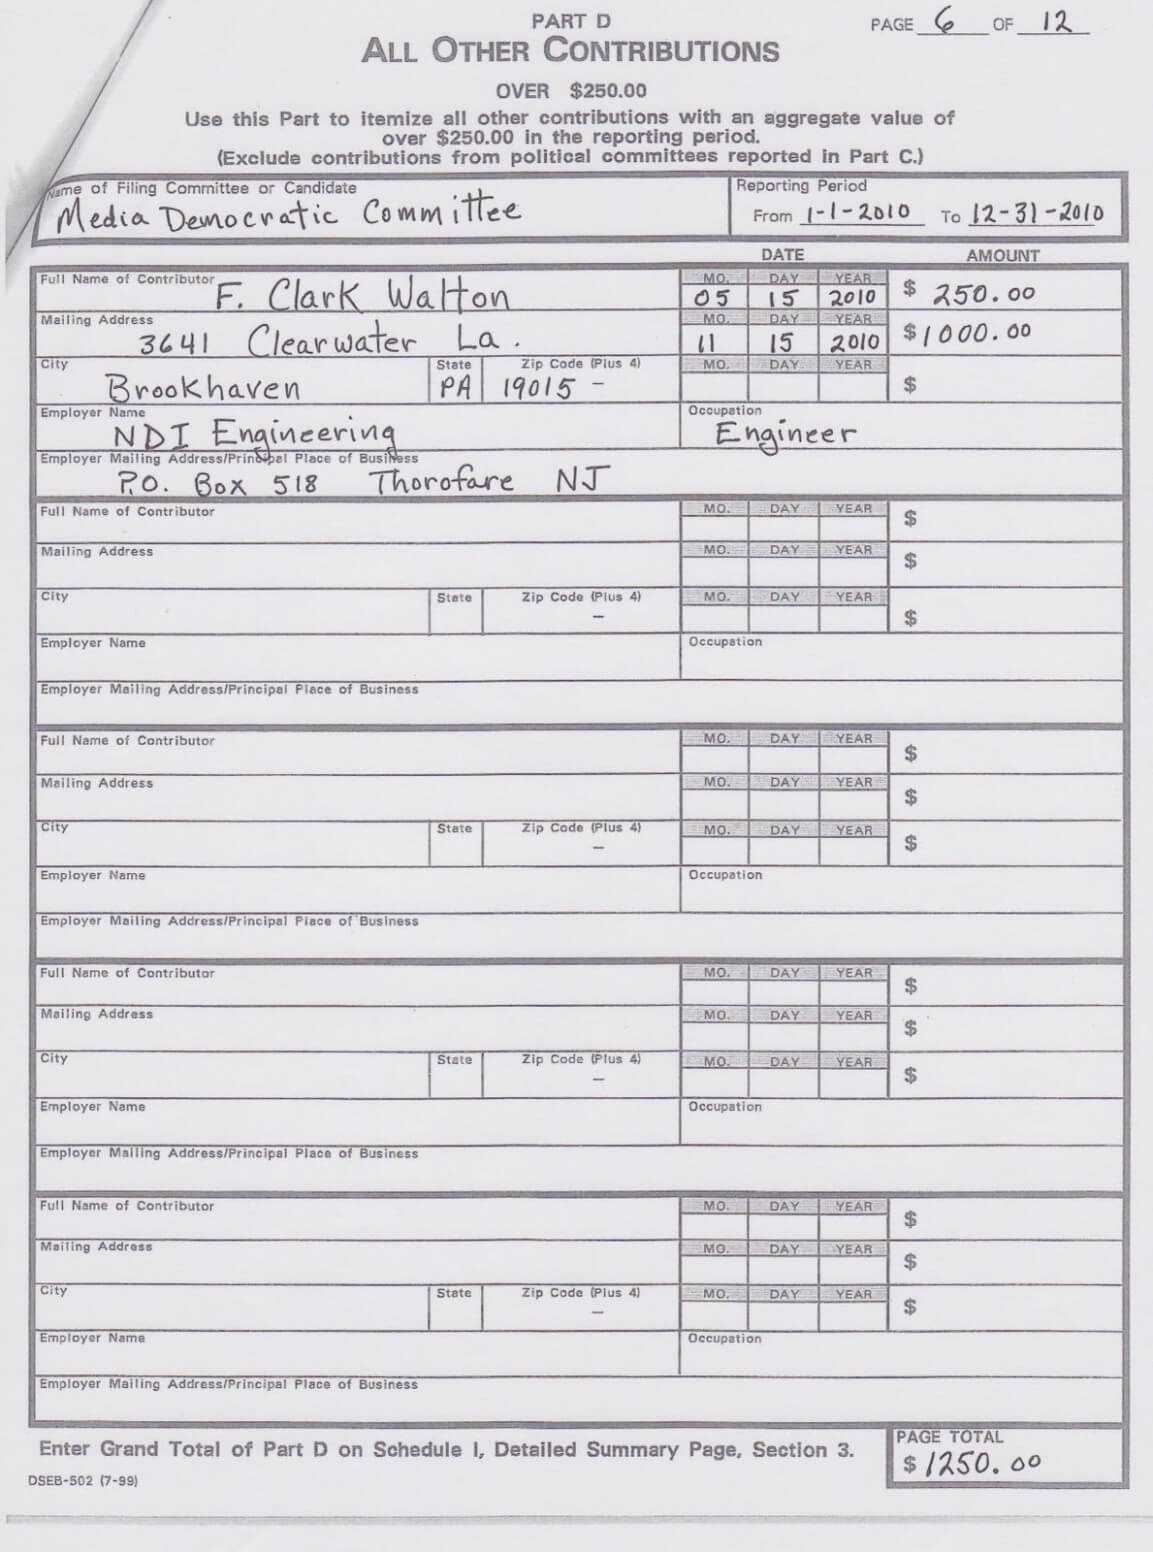 PART D
PAGE 6 OF 12
ALL OTHER CONTRIBUTIONS
OVER $250.00
Use this Part to itemize all other contributions with an aggregate value of
over $250.00 in the reporting period.
(Exclude contributions from political committees reported in Part C.)
Name of Filing Committee or Candidate
Media Democratic Committee
Reporting Period
From 1-1-2010 To 12-31-2010
DATE AMOUNT
Full Name of Contributor MO. DAY YEAR
F. Clark Walton 05 15 2010 $ 250.00
Mailing Address MO. DAY YEAR
3641 Clearwater La. 11 15 2010 $1000.00
City State Zip Code (Plus 4) MO. DAY YEAR
Brookhaven PA 19015 - $
Employer Name Occupation
NDI Engineering Engineer
Employer Mailing Address/Principal Place of Business
P.O. Box 518 Thorofare NJ
Full Name of Contributor MO. DAY YEAR $
Mailing Address MO. DAY YEAR $
City State Zip Code (Plus 4) MO. DAY YEAR
– $
Employer Name Occupation
Employer Mailing Address/Principal Place of Business
Full Name of Contributor MO. DAY YEAR $
Mailing Address MO. DAY YEAR $
City State Zip Code (Plus 4) MO. DAY YEAR
– $
Employer Name Occupation
Employer Mailing Address/Principal Place of Business
Full Name of Contributor MO. DAY YEAR $
Mailing Address MO. DAY YEAR $
City State Zip Code (Plus 4) MO. DAY YEAR
– $
Employer Name Occupation
Employer Mailing Address/Principal Place of Business
Full Name of Contributor MO. DAY YEAR $
Mailing Address MO. DAY YEAR $
City State Zip Code (Plus 4) MO. DAY YEAR
– $
Employer Name Occupation
Employer Mailing Address/Principal Place of Business
Enter Grand Total of Part D on Schedule I, Detailed Summary Page, Section 3.
PAGE TOTAL
$ 1250.00
DSEB-502 (7-99)